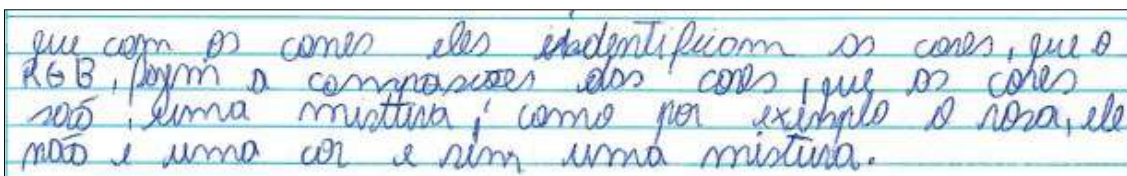 que com os cones eles identificam as cores, que o
RGB, fazem a composições das cores, que as cores
são, uma misttura, como por exemplo o rosa, ele
não e uma cor e sim uma mistura.